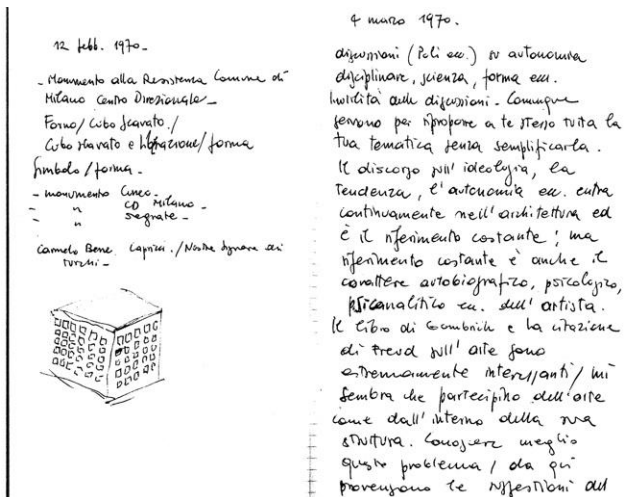 12 febb. 1970_
_ Monumento alla Resistenza Comune di
Milano Centro Direzionale_
Forno/Cubo scavato./
Cubo scavato e /forma
Simbolo/forma_
_ monumento Cuneo_
_ " CD Milano_
_ " Segrate_
Carmelo Bene. Capricci./Nostra Signora dei
turchi_
4 marzo 1970.
discussioni (Poli ecc.) su autonomia
disciplinare, scienza, forma ecc.
Inutilità delle discussioni_ Comunque
servono per riproporre a te stesso tutta la
tua tematica senza semplificarla.
Il discorso sull'ideologia, la
tendenza, l'autonomia ecc. entra
continuamente nell'architettura ed
è il riferimento costante; ma
riferimento costante è anche il
carattere autobiografico, psicologico,
psicanalitico ecc. dell'artista.
Il libro di Gombrich e la citazione
di Freud sull'arte sono
estremamente interessanti/mi
sembra che partecipino dell'arte
come dall'interno della sua
struttura. Conoscere meglio
questo problema/da qui
provengono le suggestioni del